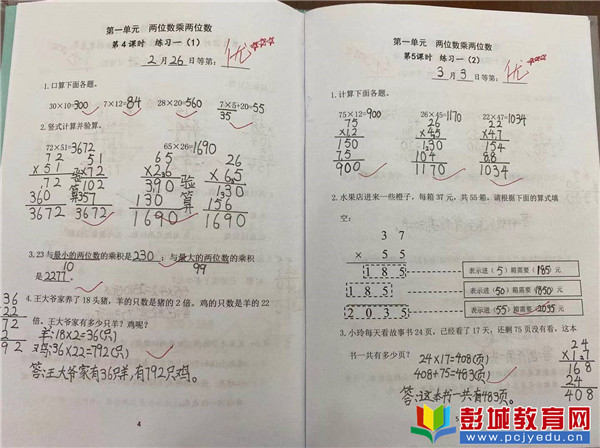 第一单元 两位数乘两位数
第4课时 练习一(1)
2月26日等第: 优
1.口算下面各题。
30×10=300 7×12=84 28×20=560 7×5+20=55
35
2.竖式计算并验算。
72×51=3672 65×26=1690
72 51 65 26
×51 验 ×72 ×26 验 ×65
72 算 102 390 算 130
360 357 130 156
3672 3672 1690 1690
3.23与最小的两位数的乘积是230;与最大的两位数的乘积
10 99
是2277。
4.王大爷家养了18头猪,羊的只数是猪的2倍。鸡的只数是羊的22
倍。王大爷家有多少只羊?鸡呢?
羊:18×2=36(只)
鸡:36×22=792(只)
答:王大爷家有36只羊,有792只鸡。
36
22
72
2
92
4
第一单元 两位数乘两位数
第5课时 练习一(2)
3月3日等第: 优
1.计算下面各题。
75×12=900 26×45=1170 22×47=1034
75 26 22
×12 ×45 ×47
150 130 154
75 104 88
900 1170 1034
2.水果店进来一些橙子,每箱37元,共55箱。请根据下面的算式填
空:
3 7
× 5 5
1 8 5 表示进(5)箱需要(185)元
1 8 5 表示进(50)箱需要(1850)元
2 0 3 5 表示进(55)箱需要(2035)元
3.小玲每天看故事书24页,已经看了17天,还剩75页没有看。这本
书一共有多少页?
24×17=408(页)
408+75=483(页)
答:这本书一共有483页。
24
×17
168
24
408
5
彭城教育网
www.pcjyedu.cn